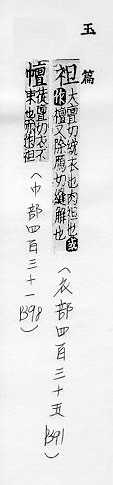 玉篇
袒
大雷切綻衣也肉袒也或
作襢又除鴈切縫解也
（衣部四百三十五 B91）
幝
徒旦切衣不
束也亦作袒
（巾部四百三十一 B98）